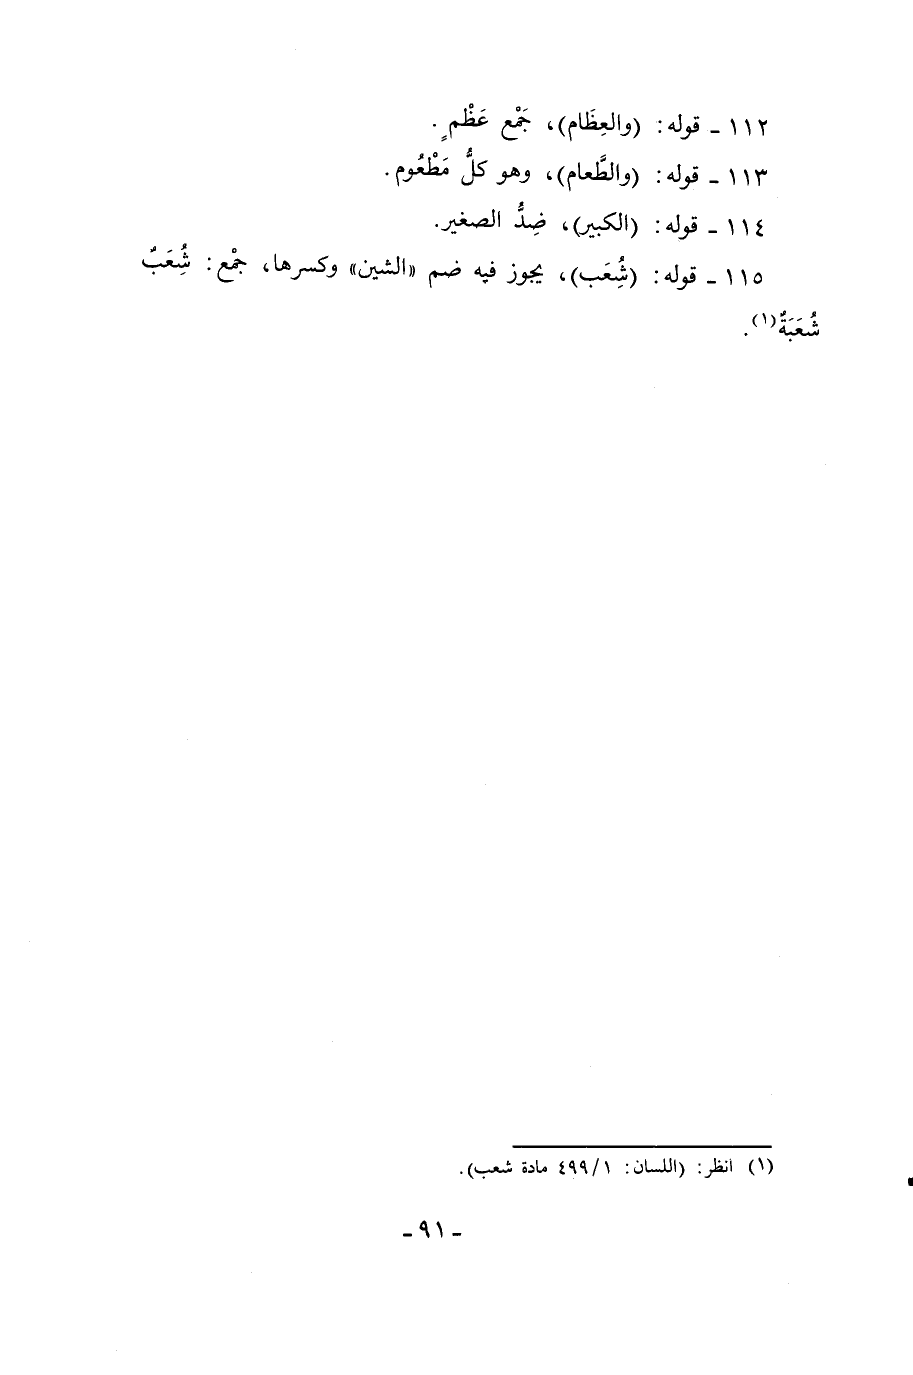 ١١٢ ـ قوله: (والعِظَام)، جَمْع عَظْمٍ.
١١٣ ـ قوله: (والطَّعام)، وهو كلُّ مَطْعُوم.
١١٤ ـ قوله: (الكبير)، ضِدُّ الصغير.
١١٥ ـ قوله: (شُِعَب)، يجوز فيه ضم «الشين» وكسرها، جمْع: شُِعَبٌ
شُعَبَةٌ(١).
(١) انظر: (اللسان: ٤٩٩/١ مادة شعب).
ـ ٩١ ـ